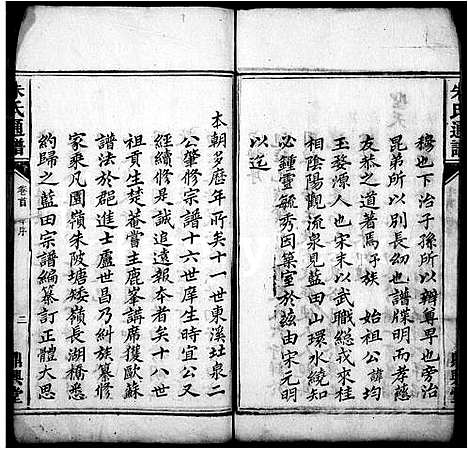 朱氏通譜
穆也下治子孫所以辨尊早也旁治
昆弟所以别長幼也譜牒明而孝慈
友恭之道著焉予族　始祖公諱均
玉婺源人也宋末以武職總戎來桂
相陰陽觀流泉見藍田山環水繞知
必鍾靈毓秀因築室於玆由宋元明
以迄
本朝多歷年所矣十一世東溪社泉二
公肇修宗譜十六世庠生時宜公又
經續修是誠追遠報本者矣十八世
祖貢生楚菴嘗主鹿峯講席獲歐蘇
譜法於郡進士盧世昌乃糾族纂修
家乘凡園嶺朱陂塘矮嶺長湖橋悉
約歸之藍田宗譜編纂訂正體大思
朱氏通譜
卷首
序
二
鼎興堂